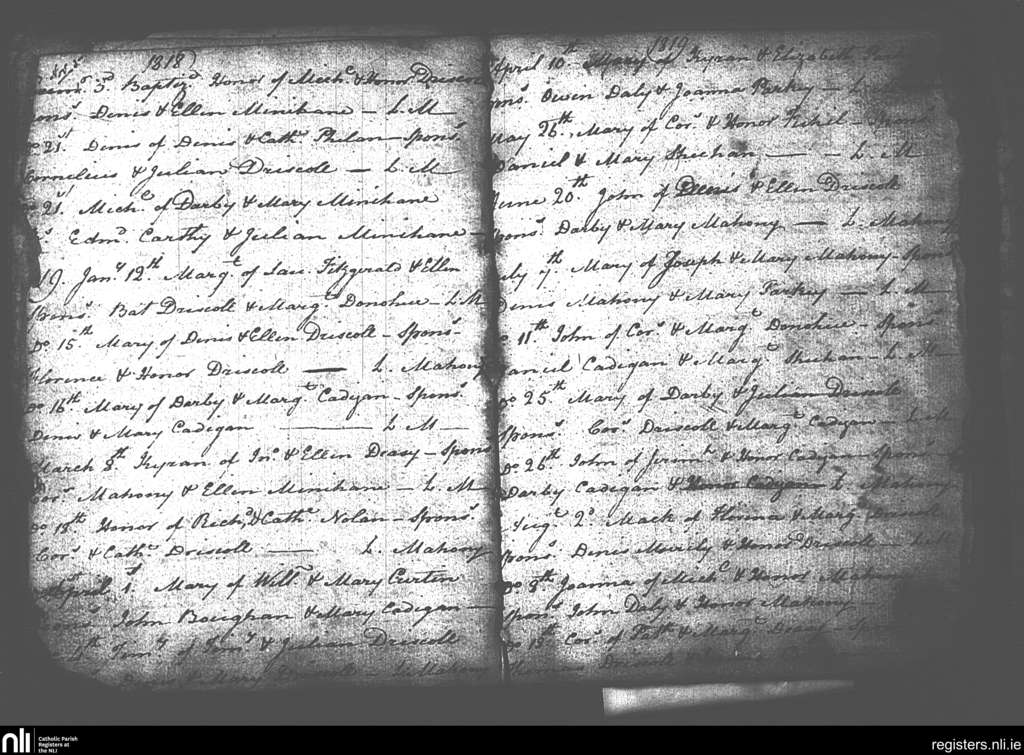 1818)
3d. Baptizd. Honor of Michl. & Honor Driscoll
Denis & Ellen Minihane — L. M
21st. Denis of Denis & Cathe. Phelan — Sponrs.
Cornelius & Julian Driscoll — L. M
21st. Michl. of Darby & Mary Minihane
Edmd. Carthy & Julian Minihane —
19. Jany. 12th. Margt. of Lau: Fitzgerald & Ellen
Sponrs. Bat Driscoll & Margt. Donohue — L. M
Do. 15th. Mary of Denis & Ellen Driscoll — Sponrs.
Florence & Honor Driscoll — L. Mahony
Do. 16th. Mary of Darby & Margt. Cadgan — Sponrs.
Denis & Mary Cadigan — L M —
March 8th. Kyran of Jno. & Ellen Deasy — Sponrs
Cors. Mahony & Ellen Minihane — L. M
Do 18th. Honor of Richd. & Cathe. Nolan — Sponrs.
Cors. & Cathe. Driscoll — L. Mahony
April 1st. Mary of Willm. & Mary Curtin
John Boughan & Mary Cadigan —
of & Julian Driscoll
& Mary Driscoll — L. Mahony
1819
April 10th Mary of Kyran & Elizabeth
Owen Daly & Joanna Perkey — L.
May 26th. Mary of Cors. & Honor
Daniel & Mary Shuhan — L. M
June 20th. John of Denis & Ellen Driscoll
Sponrs. Darby & Mary Mahony — L. Mahony
July 7th. Mary of Joseph & Mary Mahony — Sponrs
Denis Mahony & Mary — L. M
11th. John of Cors. & Margt. Donohue — Sponrs
Daniel Cadigan & Margt. Shuhan — L. M
Do 25th. Mary of Darby & Julian Driscoll
Sponrs. Cors. Driscoll & Margt. Cadgan — L. M
Do 26th. John of & Honor Cadgan — Sponrs
Darby Cadigan & Honor Cadigan L. Mahony
Augt. 2d. of & Margt. Driscoll
Sponrs. Denis & Honor Driscoll —
Do 8th. Joanna of Michl. & Honor Mahony
Sponrs John Daly & Honor Mahony —
Do 15th. Cors. of & Margt. Deasy —
Driscoll
nli
Catholic Parish
Registers at
the NLI
registers.nli.ie